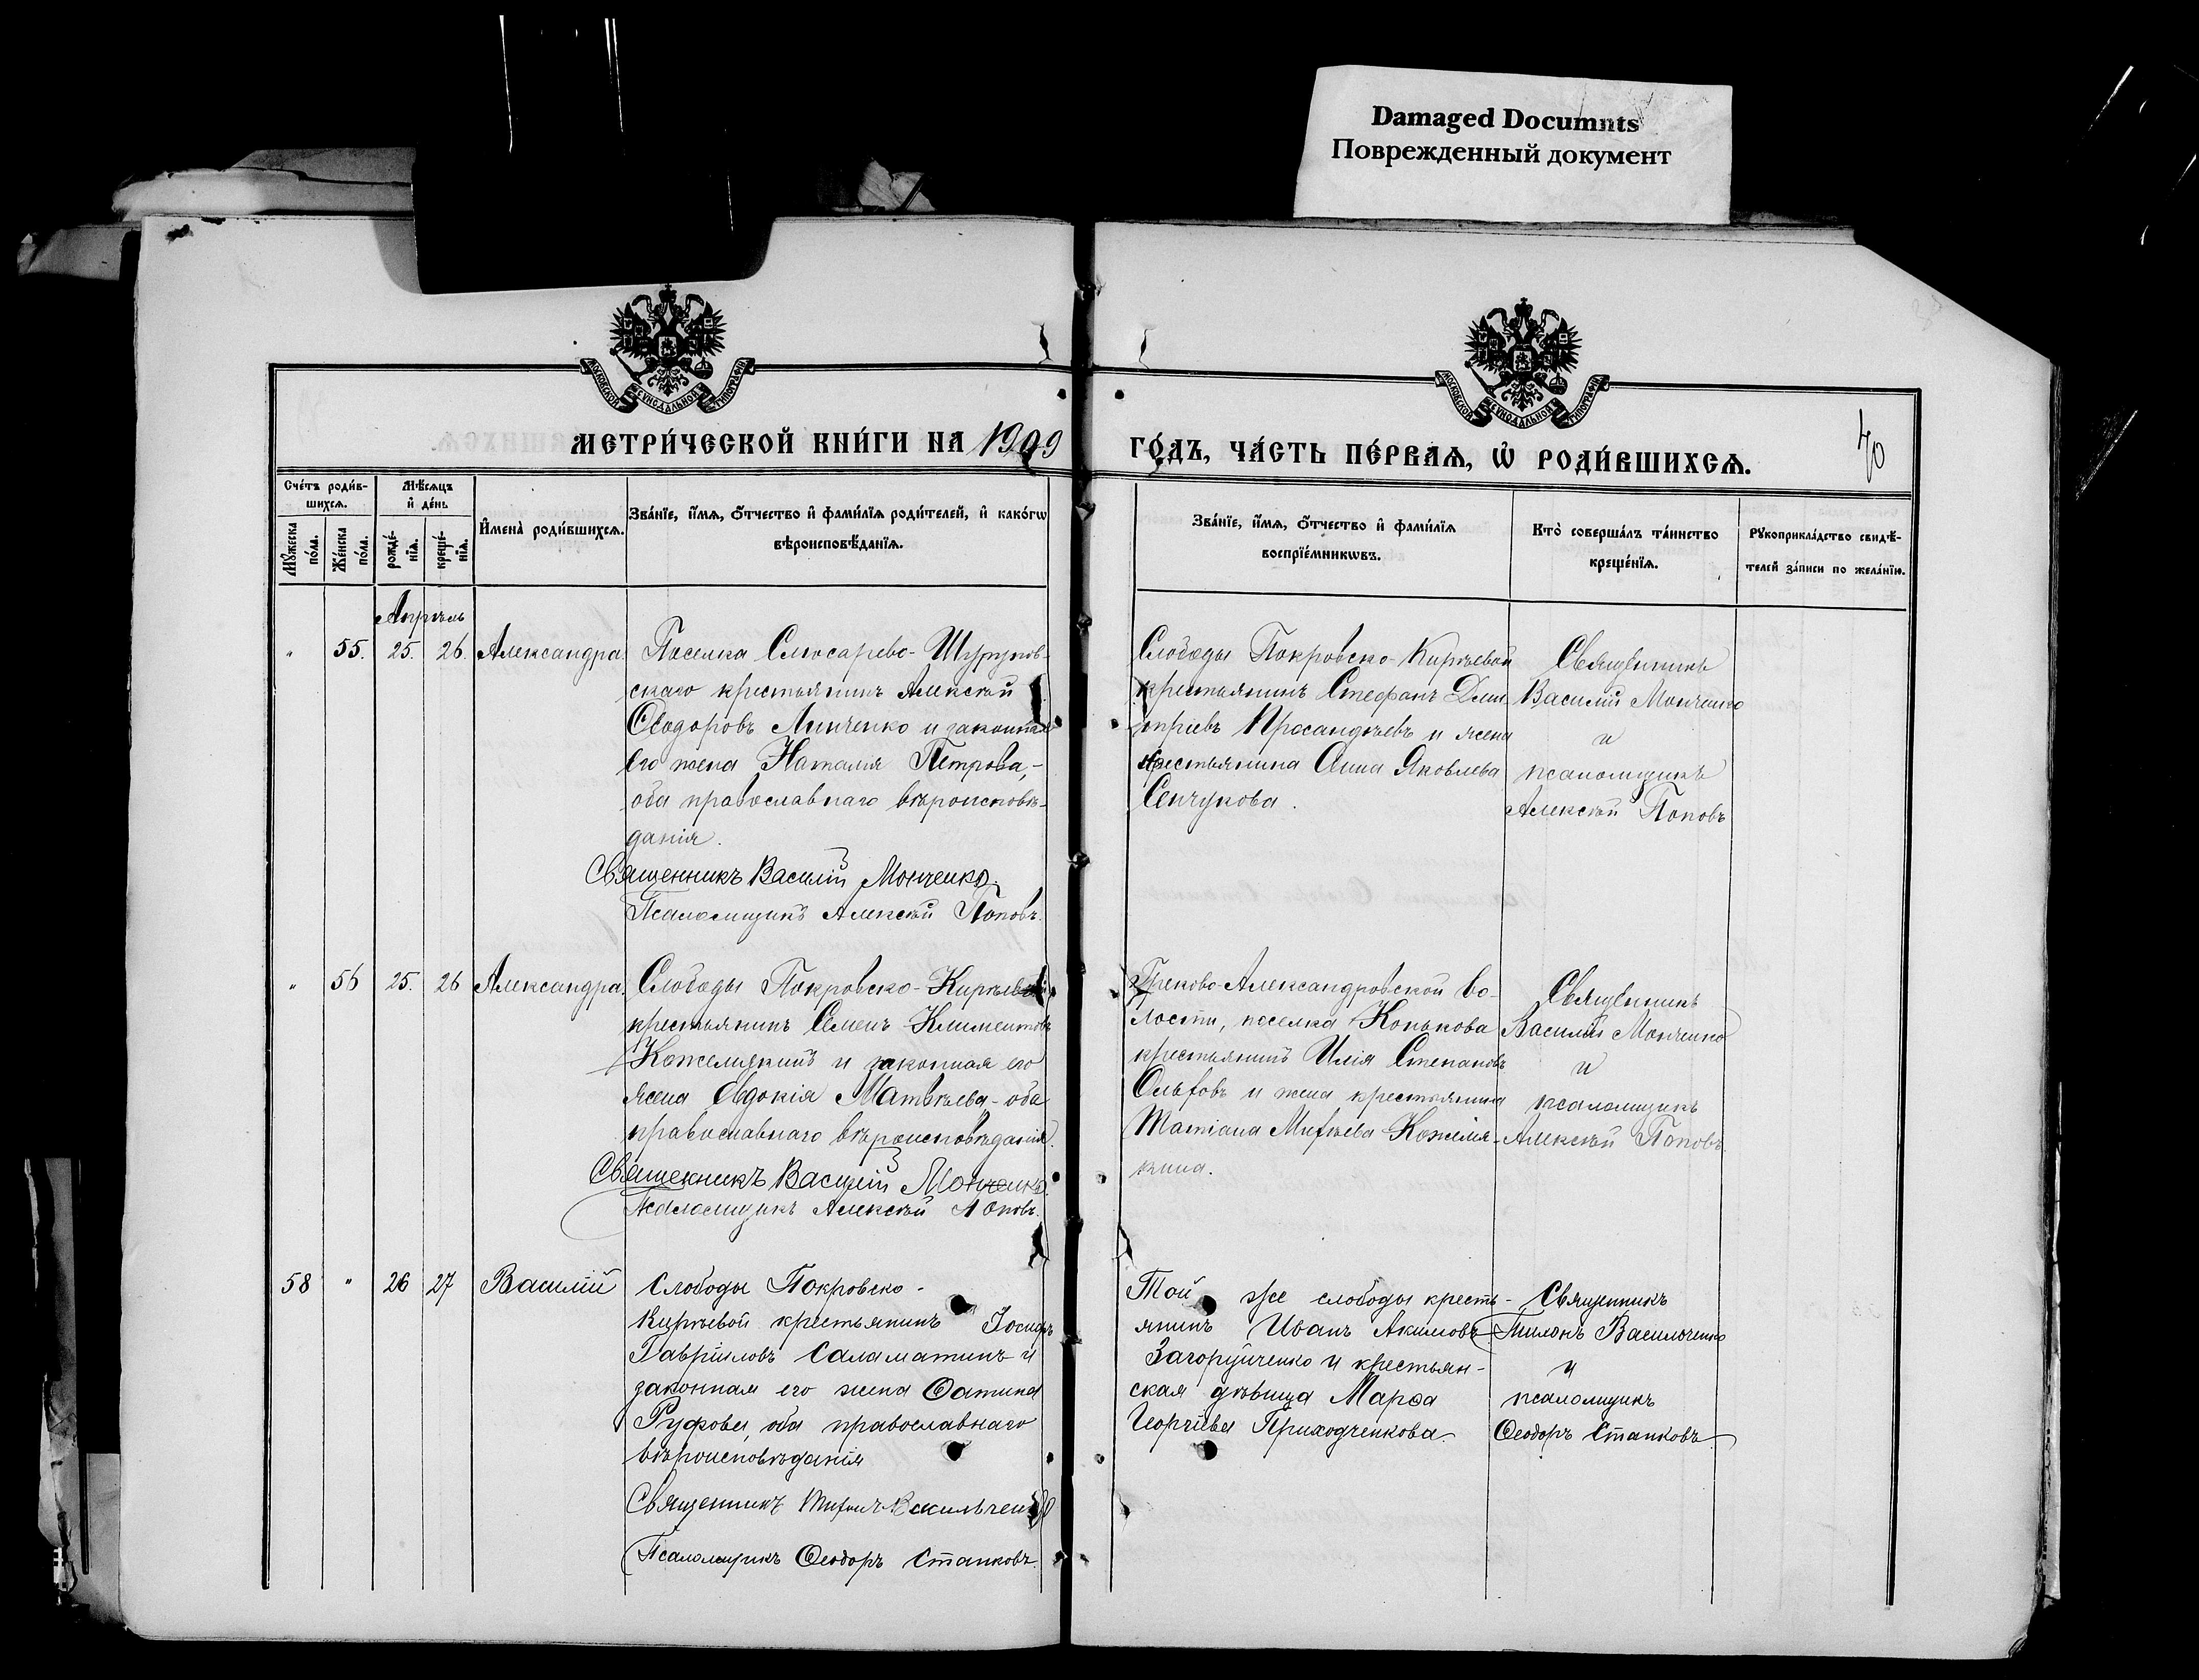 Damaged Documnts
Поврежденный документ
МОСКОВСКОЙ СѴНОДАЛЬНОЙ ТИПОГРАФІИ
МОСКОВСКОЙ СѴНОДАЛЬНОЙ ТИПОГРАФІИ
МЕТРИ́ЧЕСКОЙ КНИ́ГИ НА 1909
ГО́ДЪ, ЧА́СТЬ ПЕ́РВАѦ, Ѡ҆ РОДИ́ВШИХСѦ.
40
Сче́тъ роди́в-
шихсѧ.
Мꙋ́жеска
по́ла.
Же́нска
по́ла.
Мѣ́сѧцъ
и҆ де́нь
рожде́-
нїѧ.
креще́-
нїѧ.
И҆мена̀ роди́вшихсѧ.
Зва́нїе, и҆́мѧ, ѻ҆́тчество и҆ фами́лїѧ роди́телей, и҆ како́гѡ
вѣроисповѣ́данїѧ.
Зва́нїе, и҆́мѧ, ѻ҆́тчество и҆ фами́лїѧ
воспрїе́мникѡвъ.
Кто̀ соверша́лъ та́инство
креще́нїѧ.
Рꙋкоприкла́дство свидѣ́-
телей за́писи по жела́нїю.
Апрѣль
" 55. 25. 26. Александра.
Поселка Слюсарево-
скаго крестьянинъ Алексѣй
Ѳеодоровъ Линченко и законная
его жена Наталія Петрова,-
оба православнаго вѣроисповѣ-
данія.
Священникъ Василій Монченко.
Псаломщикъ Алексѣй Поповъ.
Слободы Покровско-Кирѣевой
крестьянинъ Стефанъ Дми-
тріевъ и жена
крестьянина Анна Яковлева
Сенчукова.
Священникъ
Василій Монченко
и
псаломщикъ
Алексѣй Поповъ
" 56 25. 26 Александра.
Слободы Покровско-Кирѣевой
крестьянинъ Семенъ Климентовъ
Кожемякинъ и законная его
жена Евдокія Матвѣева-оба
православнаго вѣроисповѣданія.
Священникъ Василій Монченко.
Псаломщикъ Алексѣй Поповъ.
Греково-Александровской во-
лости, поселка Конькова
крестьянинъ Илія Степановъ
и жена крестьянина
Татіана Кожемя-
кина.
Священникъ
Василій Монченко
и
псаломщикъ
Алексѣй Поповъ.
58 " 26 27 Василій
Слободы Покровско-
Кирѣевой крестьянинъ Іосифъ
Гавріиловъ Саламатинъ и
законная его жена Фатина
Руфова, оба православнаго
вѣроисповѣданія
Священникъ Тихонъ Васильченко
Псаломщикъ Ѳеодоръ Станковъ.
Той же слободы кресть-
янинъ Иванъ Акимовъ
Загоруйченко и крестьян-
ская дѣвица Марѳа
Георгіева Приходченкова.
Священникъ
Тихонъ Васильченко
и
псаломщикъ
Ѳеодоръ Станковъ.